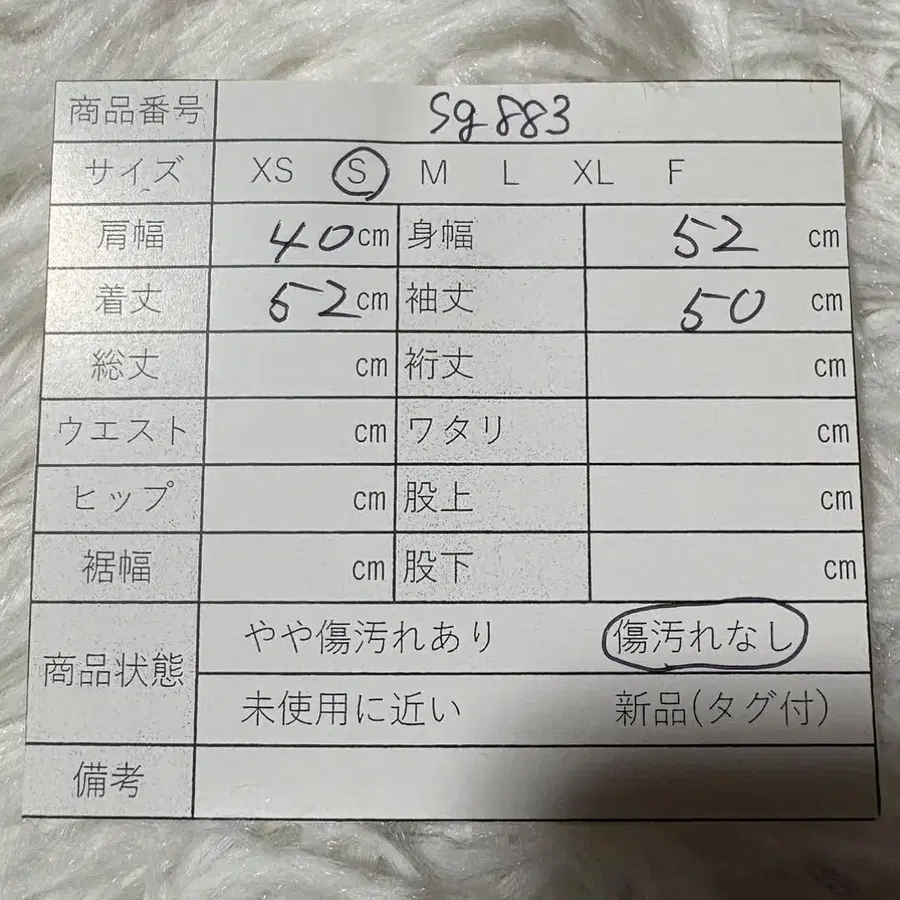 商品番号 Sg883
サイズ XS S M L XL F
肩幅 40cm 身幅 52 cm
着丈 52cm 袖丈 50 cm
総丈 cm 裄丈 cm
ウエスト cm ワタリ cm
ヒップ cm 股上 cm
裾幅 cm 股下 cm
商品状態 やや傷汚れあり 傷汚れなし
未使用に近い 新品(タグ付)
備考